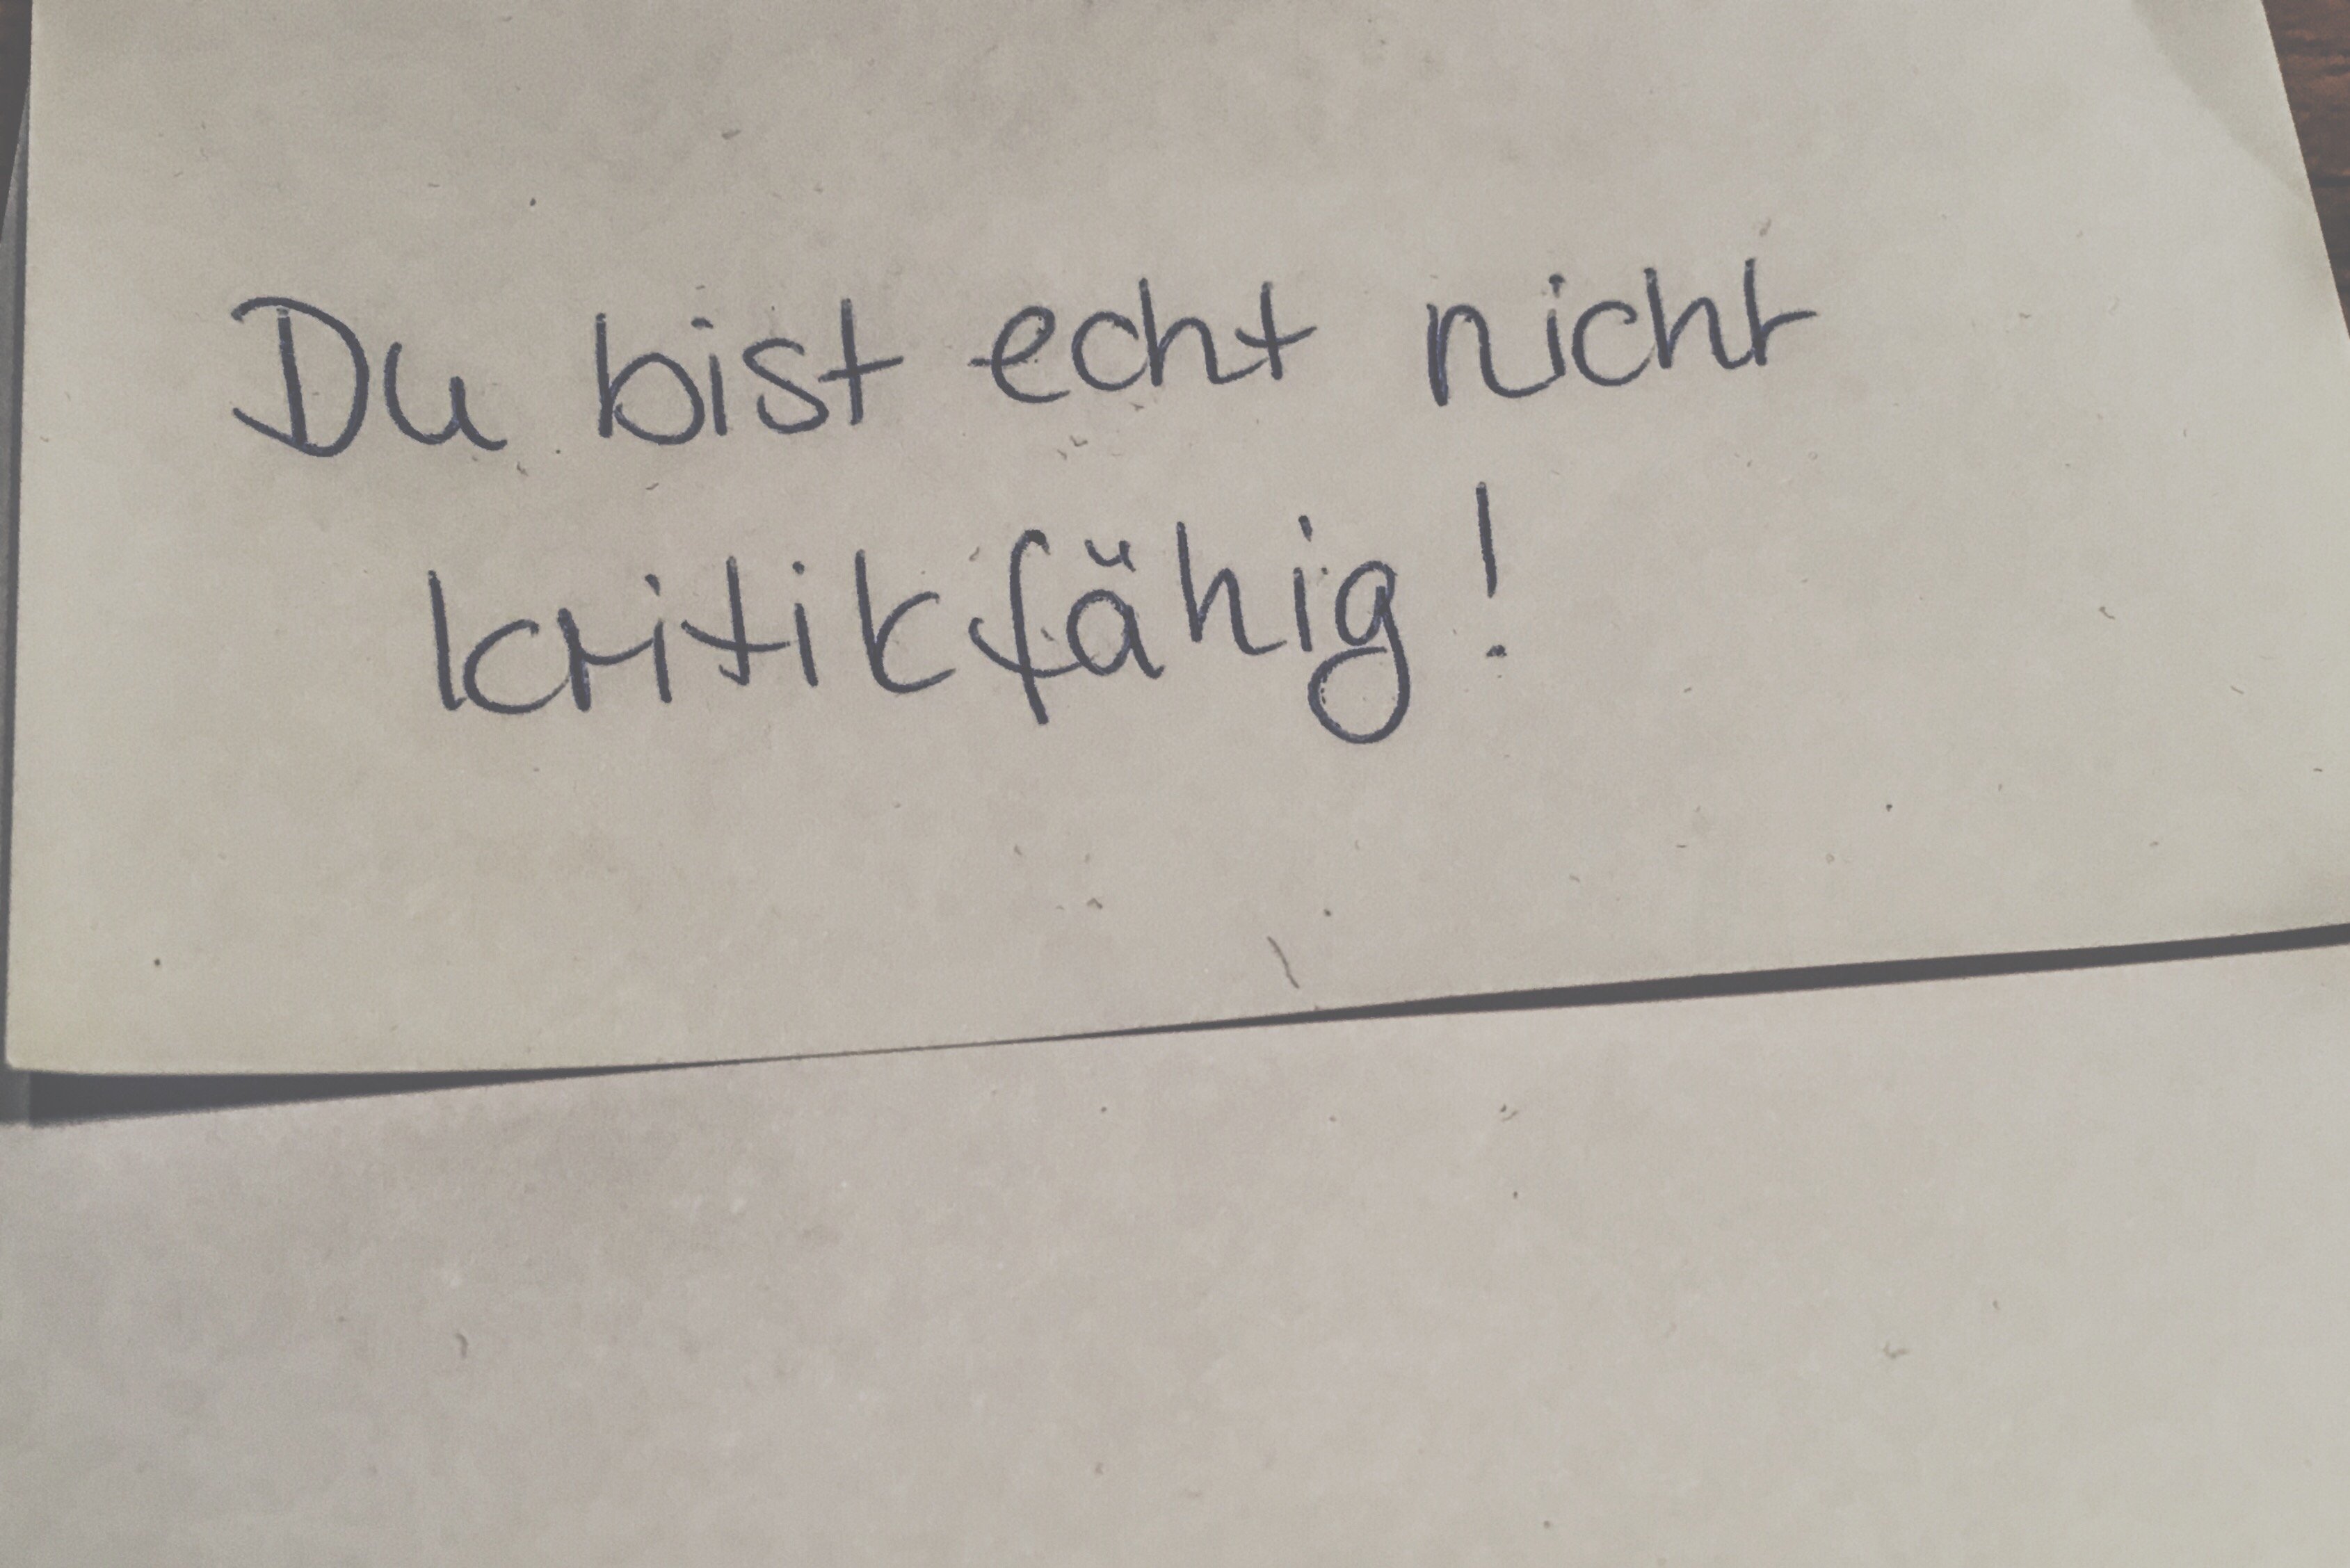 Du bist echt nicht
kritikfähig!